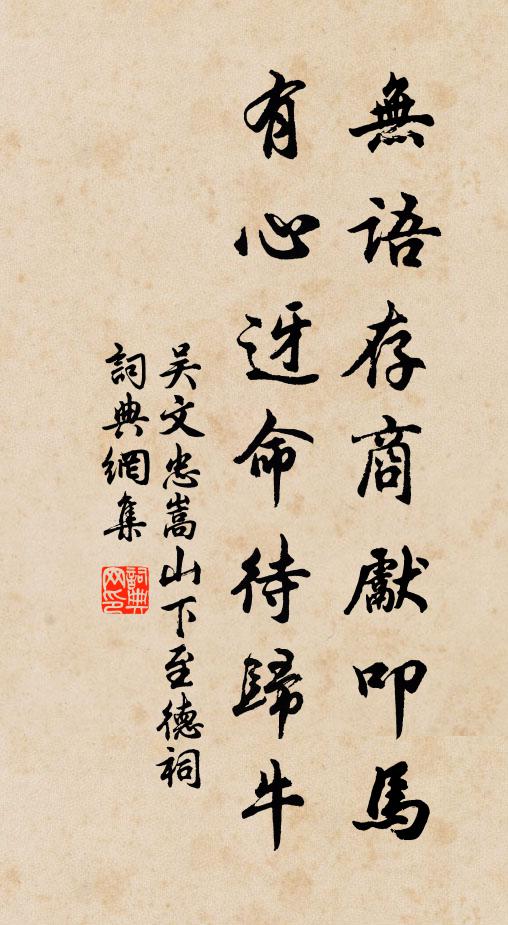 無語存商獻叩馬
有心迓命待歸牛
吴文忠嵩山下至德祠
詞典網集
詞典网印